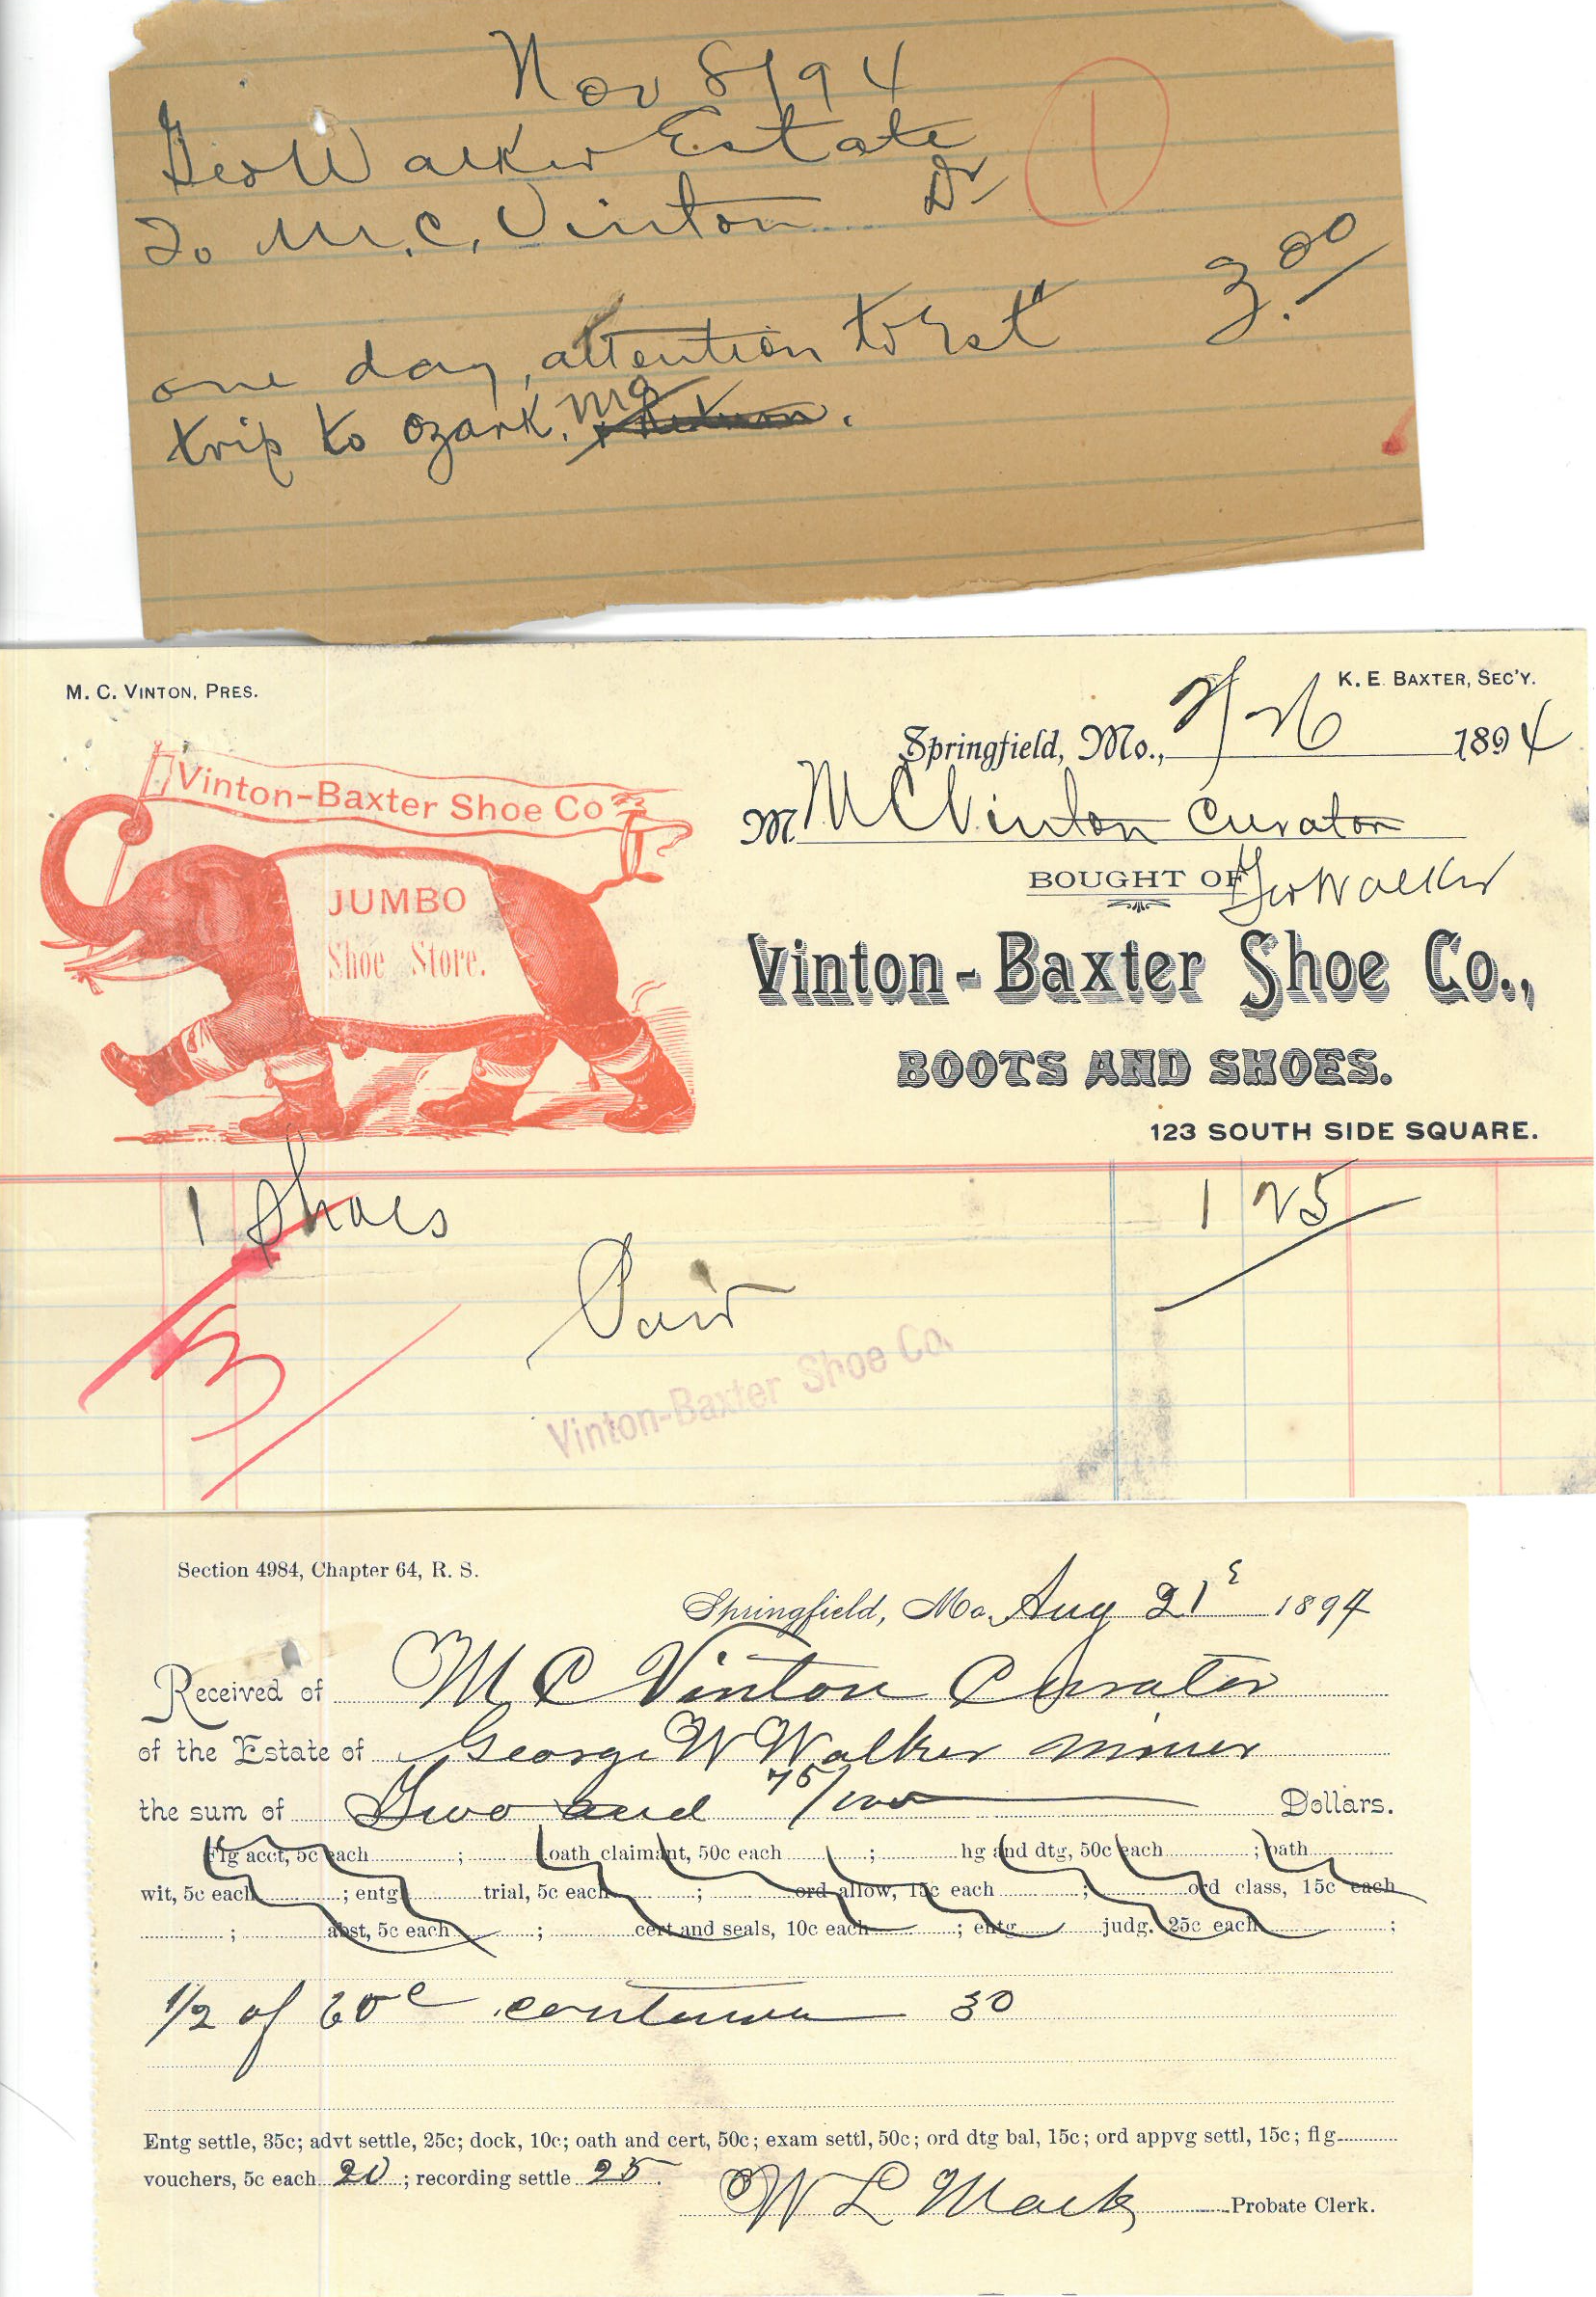 Nov 8/94
Geo Walker Estate
To M. C. Vinton Dr
1
one day, attention to Est 3.00
trip to Ozark. Mo
M. C. VINTON, PRES.
K. E. BAXTER, SEC'Y.
Springfield, Mo., 7/26 1894
M. M C Vinton Curator
BOUGHT OF Geo Walker
Vinton-Baxter Shoe Co
JUMBO
Shoe Store.
Vinton-Baxter Shoe Co.,
BOOTS AND SHOES.
123 SOUTH SIDE SQUARE.
1 Shoes 1 25
3
Paid
Vinton-Baxter Shoe Co.
Section 4984, Chapter 64, R. S.
Springfield, Mo. Aug 21 1894
Received of M C Vinton Curator
of the Estate of George W Walker minor
the sum of Two and 75/100 Dollars.
Flg acct, 5c each ; oath claimant, 50c each ; hg and dtg, 50c each ; oath
wit, 5c each ; entg trial, 5c each ; ord allow, 15c each ; ord class, 15c each
; abst, 5c each ; cert and seals, 10c each ; entg judg. 25c each ;
1/2 of 60c 30
Entg settle, 35c; advt settle, 25c; dock, 10c; oath and cert, 50c; exam settl, 50c; ord dtg bal, 15c; ord appvg settl, 15c; flg
vouchers, 5c each 20 ; recording settle 25.
W L Mack Probate Clerk.